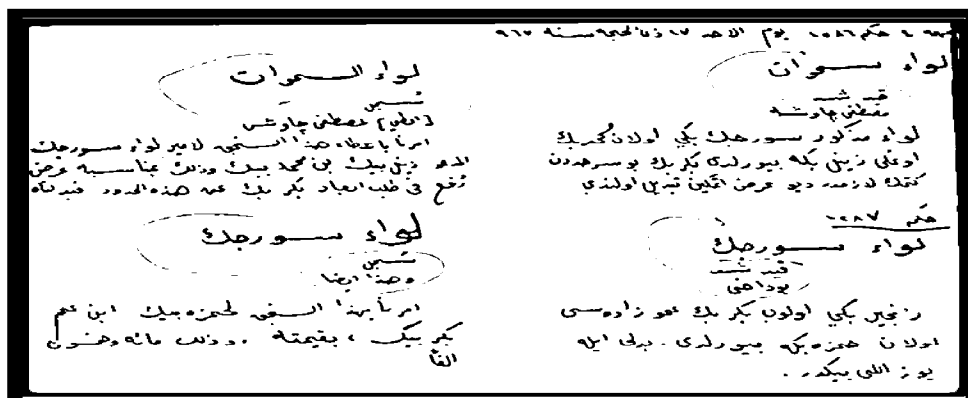 حكم ١٠٨٦ يوم الاحد ١٧ ذي الحجة سنة ٩٦٠
لواء سموات
قيد شد
مصطفى چاوشه
لواء مذكور سورجك بكي اولان محمد بك
اوغلي زينل بكه بيورلدي بكر بك بو سرحددن
كتمك لازمدر ديو عرض اتمكين تبديل اولندي
حكم ١٠٨٧
لواء سورجك
قيد شد
بوداخي
بكي اولان بكر بك عمو زاده سي
اولان حمزه بكه بيورلدي . بدلي ايله
يوز اللي بيكدر .
لواء السموات
[اعطي] مصطفى چاوش
امرنا باعطاء هذا السنجق لامير لواء سورجك
زينل بيك بن محمد بيك وذلك بمناسبة عرض
رفع في طلب ابعاد بكر بك عن هذه الحدود
لواء سورجك
وهذا ايضا
امرنا بهذا السنجق لحمزه بيك ابن عم
بكر بيك ، بقيمته . وذلك مائة وخمسون
الفا